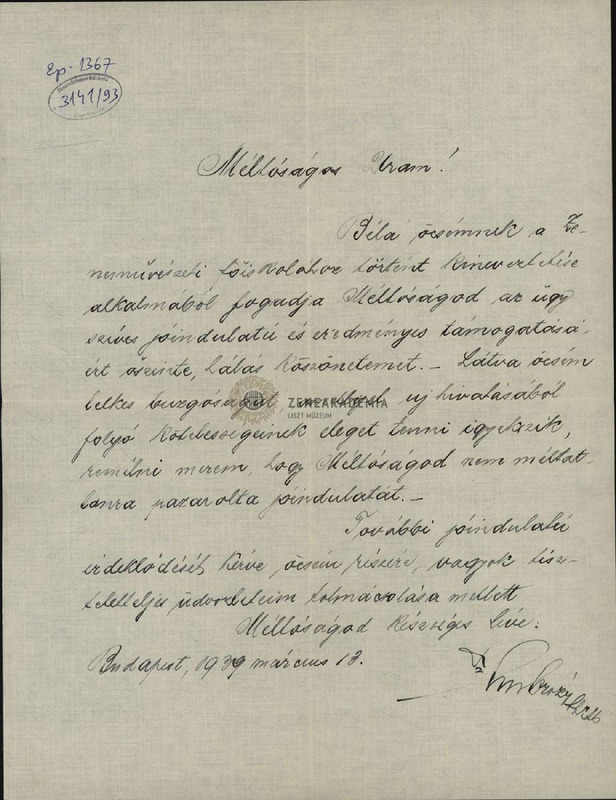 Ep. 1367
3141/93
Méltóságos Uram!
Béla öcsémnek a Ze-
neművészeti főiskolához történt kineveztetése
alkalmából fogadja Méltóságod az ügy
szíves jóindulatú és eredményes támogatásá-
ért őszinte, hálás köszönetemet. – Látva öcsém
lelkes buzgóságát új hivatásából
folyó kötelességeinek eleget tenni igyekszik,
remélni merem, hogy Méltóságod nem méltat-
lanra pazarolta jóindulatát. –
További jóindulatú
érdeklődését kérve öcsém részére, vagyok tisz-
teletteljes üdvözleteim tolmácsolása mellett
Méltóságod készséges híve:
Budapest, 1939 március 13.
Dr
ZENEAKADÉMIA
LISZT MÚZEUM